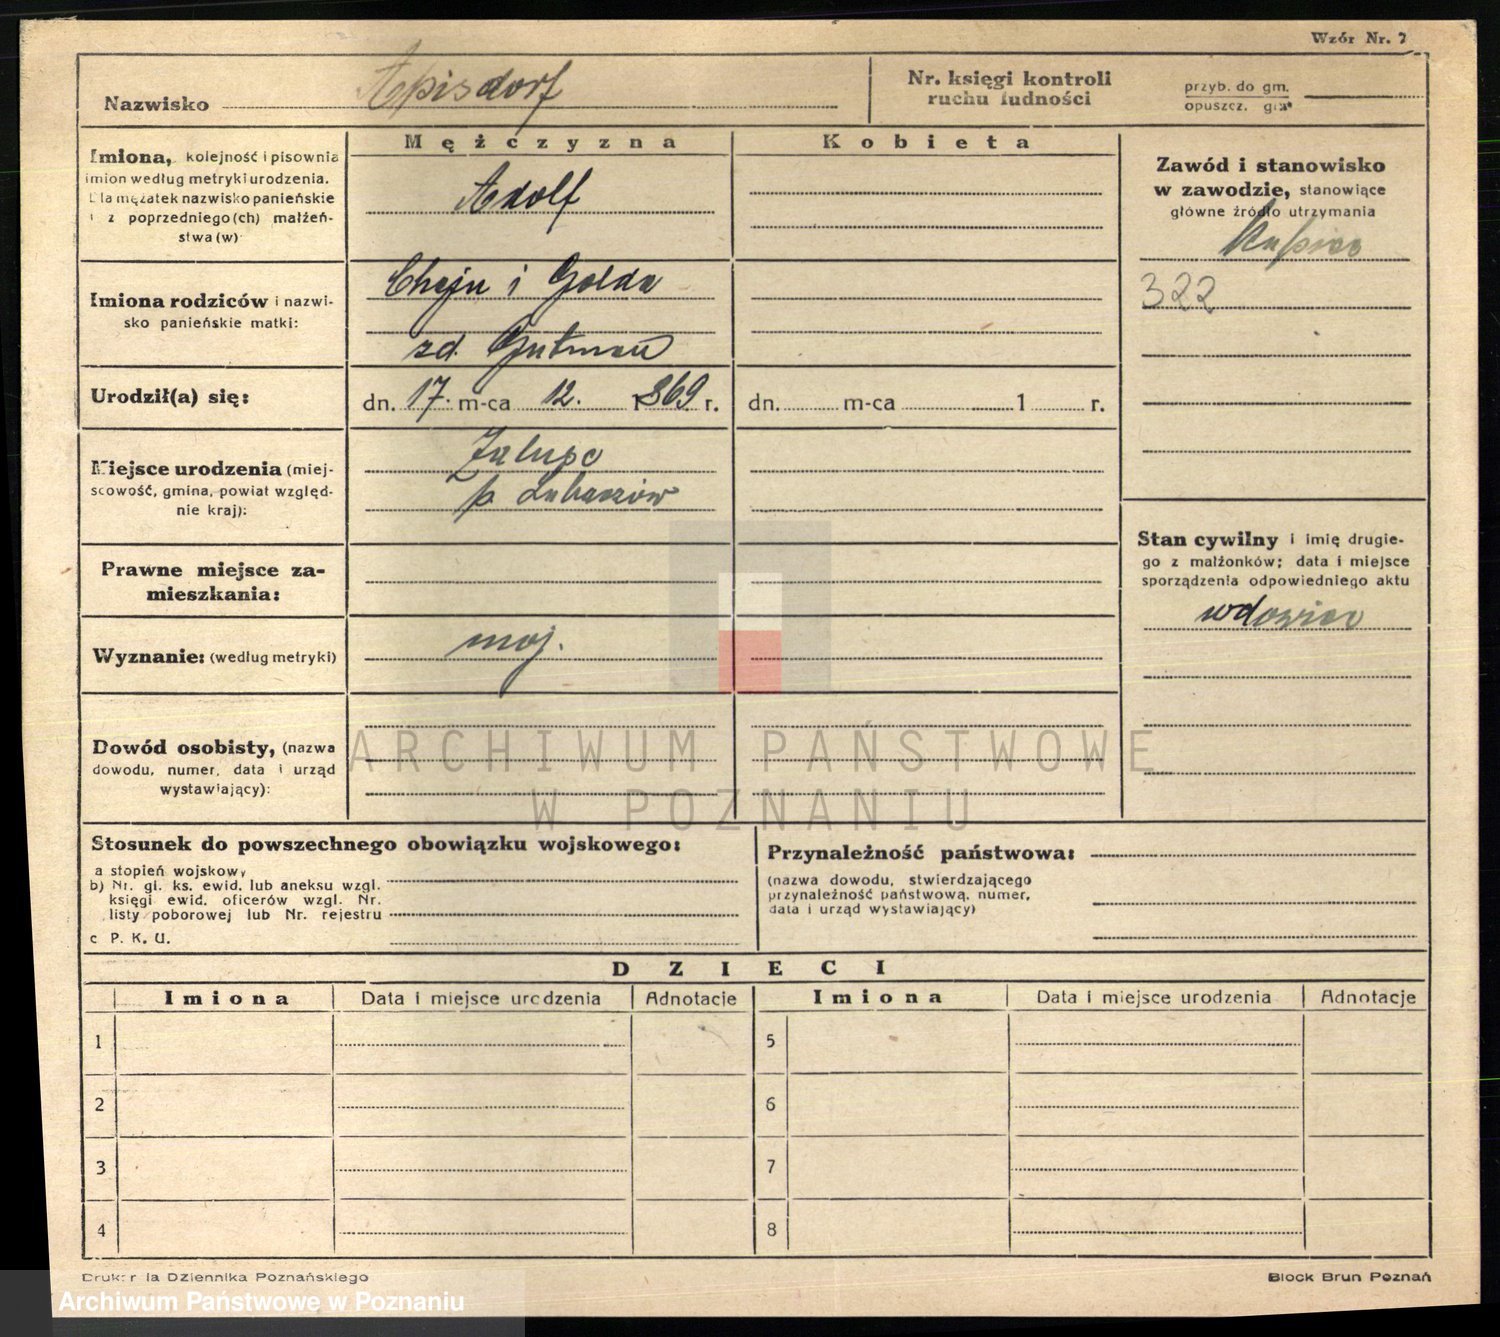 Wzór Nr. 7
Nazwisko Apisdorf
Nr. księgi kontroli
ruchu ludności
przyb. do gm.
opuszcz. gm.
Mężczyzna
Kobieta
Imiona, kolejność i pisownia
imion według metryki urodzenia.
Dla mężatek nazwisko panieńskie
i z poprzedniego(ch) małżeń-
stwa(w)
Adolf
Zawód i stanowisko
w zawodzie, stanowiące
główne źródło utrzymania
kupiec
322
Imiona rodziców i nazwi-
sko panieńskie matki:
i Golda
zd. Gutman
Urodził(a) się:
dn. 17. m-ca 12. 1869 r.
dn. m-ca 1 r.
Miejsce urodzenia (miej-
scowość, gmina, powiat względ-
nie kraj):
Zaluże
p. Lubaczów
Prawne miejsce za-
mieszkania:
Wyznanie: (według metryki)
moj.
Stan cywilny i imię drugie-
go z małżonków; data i miejsce
sporządzenia odpowiedniego aktu
wdowiec
Dowód osobisty, (nazwa
dowodu, numer, data i urząd
wystawiający):
ARCHIWUM PAŃSTWOWE
W POZNANIU
Stosunek do powszechnego obowiązku wojskowego:
a stopień wojskowy
b) Nr. gł. ks. ewid. lub aneksu wzgl.
księgi ewid. oficerów wzgl. Nr.
listy poborowej lub Nr. rejestru
c P. K. U.
Przynależność państwowa:
(nazwa dowodu, stwierdzającego
przynależność państwową, numer,
data i urząd wystawiający)
DZIECI
Imiona Data i miejsce urodzenia Adnotacje Imiona Data i miejsce urodzenia Adnotacje
1 5
2 6
3 7
4 8
Drukarnia Dziennika Poznańskiego
Block Brun Poznań
Archiwum Państwowe w Poznaniu